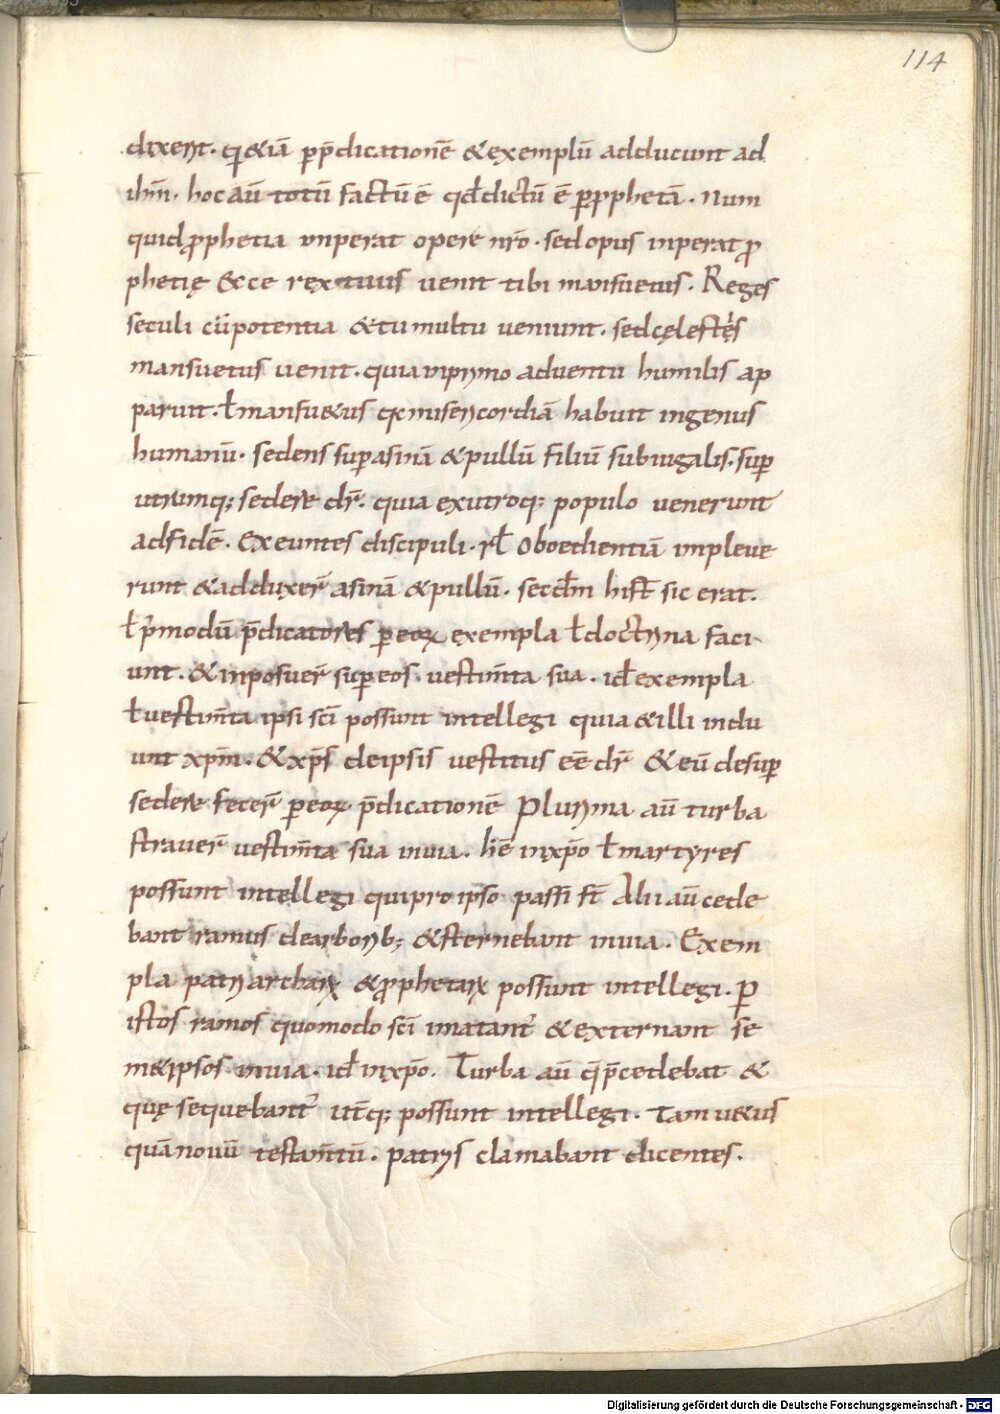 114
dixerit. qui &iā p p̄dicationē & exemplū adducunt ad
ihm̄. hoc aū totū factū ē qđ dictū ē p prophetā. Num
quid prophetia inperat opere nr̄o. sed opus inperat pro
phetię Ecce rex tuus uenit tibi mansuetus. Reges
seculi cū potentia & tumultu ueniunt. sed cęlestes
mansuetus uenit. quia in primo aduentu humilis ap
paruit. ł mansu&us qx misericordiā habuit in genus
humanū. sedens sup asinā & pullū filiū subiugalis. sup
utrumq; sedere dr̄. quia ex utroq; populo uenerunt
ad fidē. Exeuntes discipuli. rł Oboedientiā impleue
runt & adduxer̄ asinā & pullū. secđm hist̄ sic erat.
ł p̄modū p̄dicatores p eoꝝ exempla ł doctrina faci
unt. & inposuer̄ sup eos uestim̄ta sua. iđ exempla
ł uestim̄ta ipsi sc̄i possunt intellegi quia & illi indu
unt xp̄m. & xp̄s de ipsis uestitus eē dr̄ & eū desup
sedere fecer̄ p eoꝝ p̄dicationē Plurima aū turba
strauer̄ uestim̄ta sua in uia. h̄ē in xp̄o ł martyres
possunt intellegi qui pro ipso passi st̄ Alii aū cede
bant ramus de arborib; & sternebant in uia. Exem
pla patriarchaꝝ & prophetaꝝ possunt intellegi. P
istos ramos quomodo sc̄i imatant̄ & externant se
m&ipsos in uia. iđ in xp̄o. Turba aū q̄ p̄cedebat &
quę sequebant̄ ut̄q; possunt intellegi. Tam u&us
quā nouū testam̄tū. patris clamabant dicentes.
Digitalisierung gefördert durch die Deutsche Forschungsgemeinschaft - DFG